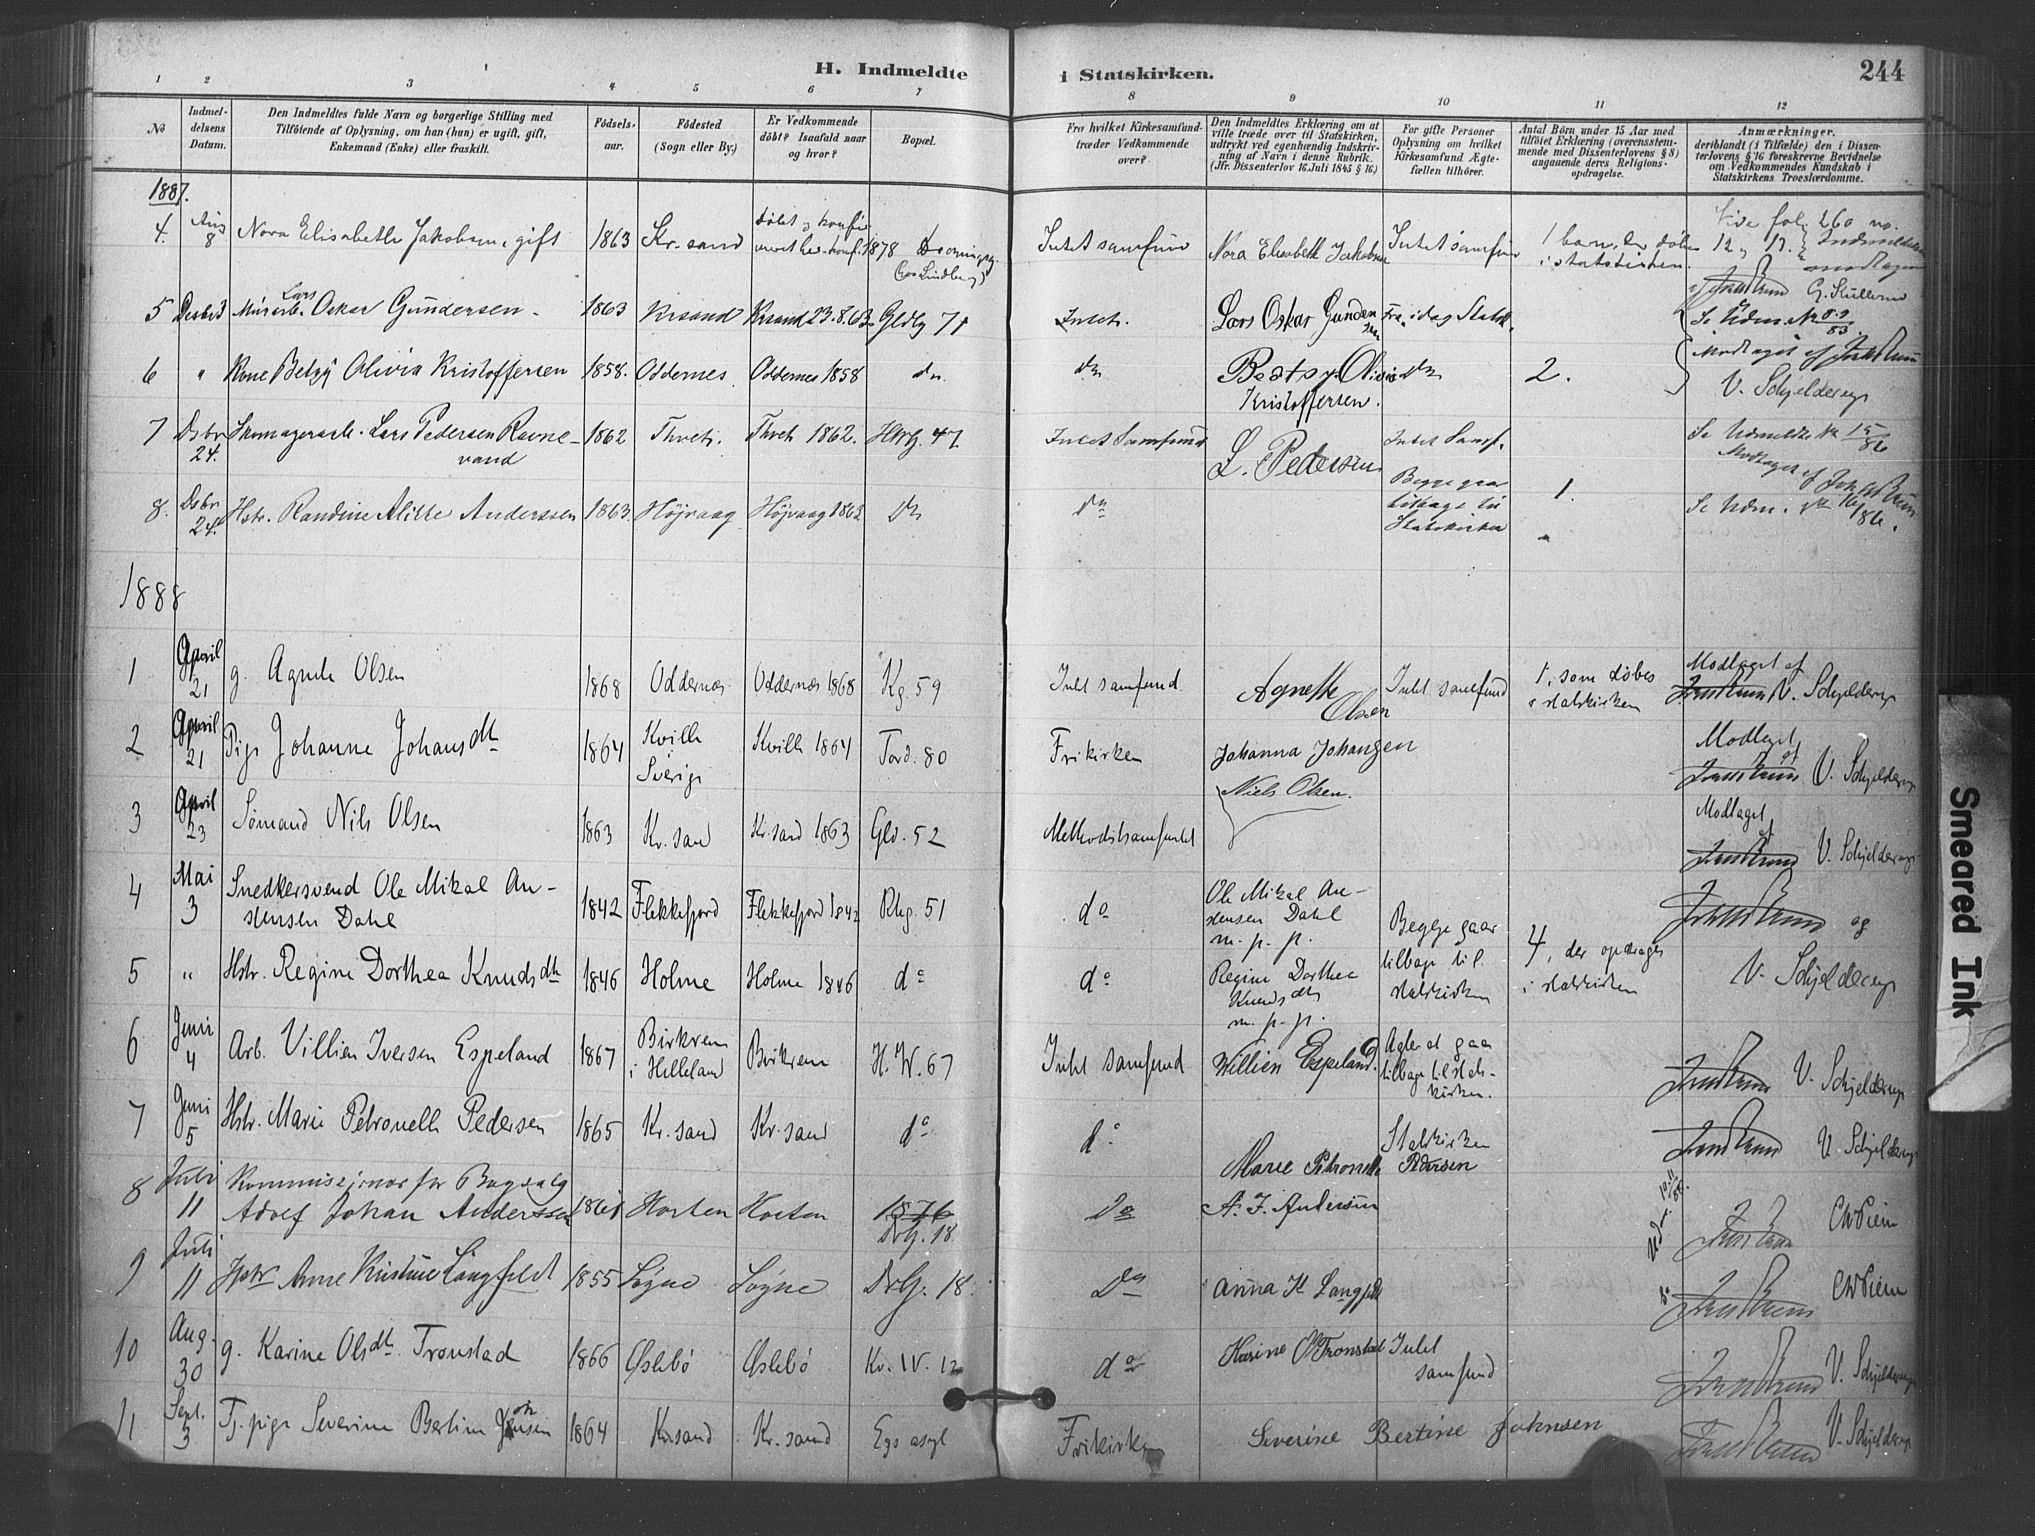 H. Indmeldte i Statskirken. 244
1 2 3 4 5 6 7 8 9 10 11 12
No
Indmel-
delsens
Datum.
Den Indmeldtes fulde Navn og borgerlige Stilling med
Tilföiende af Oplysning, om han (hun) er ugift, gift,
Enkemand (Enke) eller fraskilt.
Födsels-
aar.
Födested
(Sogn eller By.)
Er Vedkommende
döbt? Isaafald naar
og hvor?
Bopæl.
Fra hvilket Kirkesamfund
træder Vedkommende
over?
Den Indmeldtes Erklæring om at
ville træde over til Statskirken,
udtrykt ved egenhændig Indskriv-
ning af Navn i denne Rubrik.
(Jfr. Dissenterlov 16 Juli 1845 § 16.)
For gifte Personer
Oplysning om hvilket
Kirkesamfund Ægte-
fællen tilhörer.
Antal Börn under 15 Aar med
tilföiet Erklæring (overensstem-
mende med Dissenterlovens § 8)
angaaende deres Religions-
opdragelse.
Anmærkninger,
deriblandt (i Tilfælde) den i Dissen-
terlovens § 16 foreskrevne Bevidnelse
om Vedkommendes Kundskab i
Statskirkens Troeslærdomme.
1887.
4. Aug 8 Nora Elisabeth Jakobsen, gift 1863 Kr. sand
1878
Intet samfund Nora Elisabeth Jakobsen Intet samfund 1 barn, der døbes
i statskirken.
Vide fol. 260 no.
12 og 13.
5 Desbr 3 Murarb. Lars Oskar Gundersen 1863 Krsand Krsand 23.8.63 Gldg 71 Intet. Lars Oskar Gundersen Fra idag Statsk.
Se Udm. No
6 " Kone Betzy Olivia Kristoffersen 1858. Oddernes Oddernes 1858 do do Beatsy Olivia
Kristoffersen. do 2.
Modtaget af
V. Schjelderup
7 Dsbr
24. Skomagerarb. Lars Pedersen Ravne-
vand 1862 Thveit. Thveit 1862. HstrG. 47 Intet Samfund L. Pedersen Intet Samf. Se Udmeldte No 15/86
Modtaget af
8. Dsbr
24. Hstr. Randine Alitte Anderssen 1863. Höjvaag Höjvaag 1863 do do Begge gaar
tilbage til
Statskirken 1. Se Udm. No 16/86.
1888
1 April
21 g. Agnete Olsen 1868 Oddernæs Oddernæs 1868 Kg. 59 Intet samfund Agnette
Olsen Intet samfund 1, som døbes
i statskirken Modtaget af
V. Schjelderup
2 April
21 Pige Johanne Johansdtr 1864 Kville
Sverige Kville 1864 Tord. 80 Frikirken Johanna Johansen Modtaget
af V. Schjelderup
3 April
23 Sømand Nils Olsen 1863 Kr. sand Kr. sand 1863 Glv. 52 Methodistsamfundet Niels Olsen. Modtaget
af V. Schjelderup
4 Mai
3 Snedkersvend Ole Mikal An-
stensen Dahl 1842 Flekkefjord Flekkefjord 1842 Rhg. 51 do Ole Mikal An-
stensen Dahl
m. p. p. Begge gaar
tilbage til
statskirken 4, der opdrages
i statskirken og
V. Schjelderup
5 " Hstr. Regine Dorthea Knudsdtr 1846 Holme Holme 1846 do do Regine Dorthea
Knudsdtr
m. p. p.
6 Juni
4 Arb. Villien Iversen Espeland 1867 Birkrem
i Helleland Birkrem H. W. 67 Intet samfund Willien Espeland. Agter at gaa
tilbage til stats-
kirken. V. Schjelderup
7 Juni
5 Hstr. Marie Petronelle Pedersen 1865 Kr. sand Kr. sand do do Marie Petronella Pedersen Statskirken V. Schjelderup
8 Juli
11 Kommissjonær for Bogsalg
Adolf Johan Anderssen 1861 Horten Horten DrG. 18 do A. J. Andersson
9 Juli
11 Hstr Anne Kristine Langfeldt 1855 Søgne Søgne DrG. 18. do Anna K Langfeldt
10 Aug.
30 g. Karine Olsdtr. Tronstad 1866 Øslebö Øslebö Kv. IV. 12 do Karine O Tronstad Intet
samfund V. Schjelderup
11 Sept.
3 Tj. pige Severine Bertine 1864 Kr.sand Kr. sand Egs asyl Frikirken Severine Bertine Johnsen V. Schjelderup
Smeared Ink